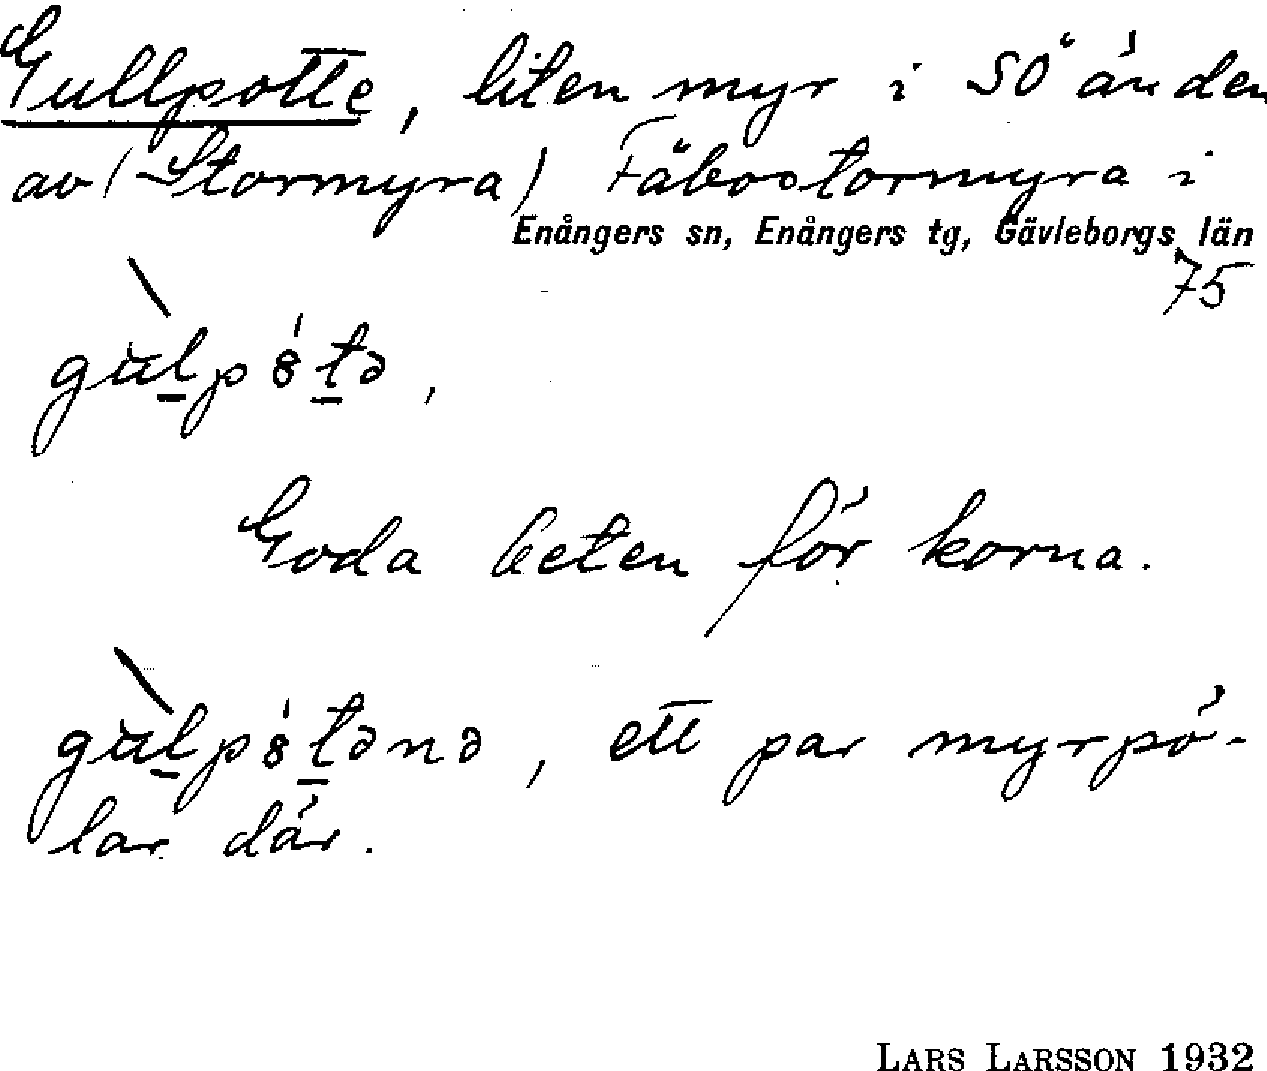 Gullpotte, liten myr i SÖ änden
av (Stormyra) Fäbostormyra i
Enångers sn, Enångers tg, Gävleborgs län
75
gùlpȣ́tə,
Goda beten för korna.
gùlpȣ́tənə, ett par myrpö-
lar där.
LARS LARSSON 1932